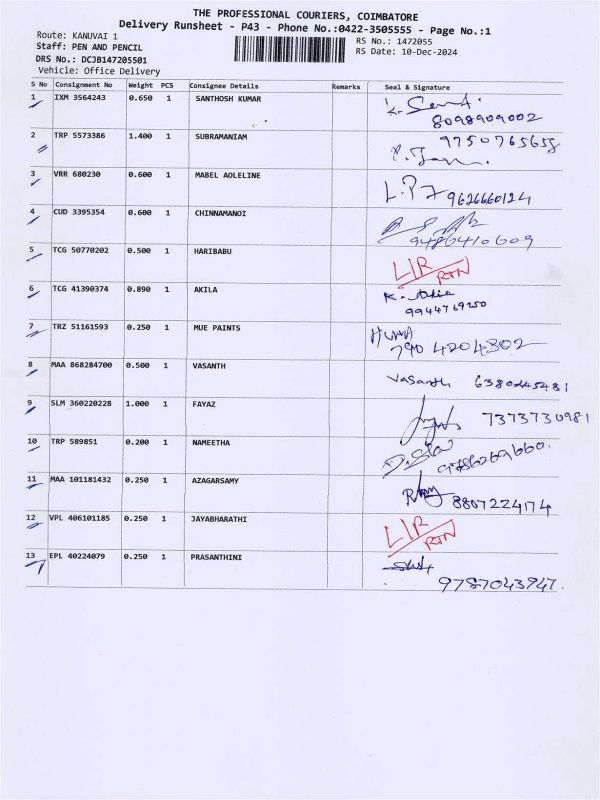 THE PROFESSIONAL COURIERS, COIMBATORE
Delivery Runsheet - P43 - Phone No.:0422-3505555 - Page No.:1
Route: KANUVAI 1
RS No.: 1472055
Staff: PEN AND PENCIL
RS Date: 10-Dec-2024
DRS No.: DCJB147205501
Vehicle: Office Delivery
S No Consignment No Weight PCS Consignee Details Remarks Seal & Signature
1 IXM 3564243 0.650 1 SANTHOSH KUMAR
8098909002
2 TRP 5573386 1.400 1 SUBRAMANIAM 9750765658
3 VRR 680230 0.600 1 MABEL AOLELINE 9626660124
4 CUD 3395354 0.600 1 CHINNAMANOI
9486410609
5 TCG 50770202 0.500 1 HARIBABU L/R
RTN
6 TCG 41390374 0.890 1 AKILA
9944769250
7 TRZ 51161593 0.250 1 MUE PAINTS
790 4204302
8 MAA 868284700 0.500 1 VASANTH Vasanth 6380245481
9 SLM 360220228 1.000 1 FAYAZ 7373730981
10 TRP 589851 0.200 1 NAMEETHA 9786269660.
11 MAA 101181432 0.250 1 AZAGARSAMY 8807224174
12 VPL 406101185 0.250 1 JAYABHARATHI L/R
RTN
13 EPL 40224079 0.250 1 PRASANTHINI
9787043947.